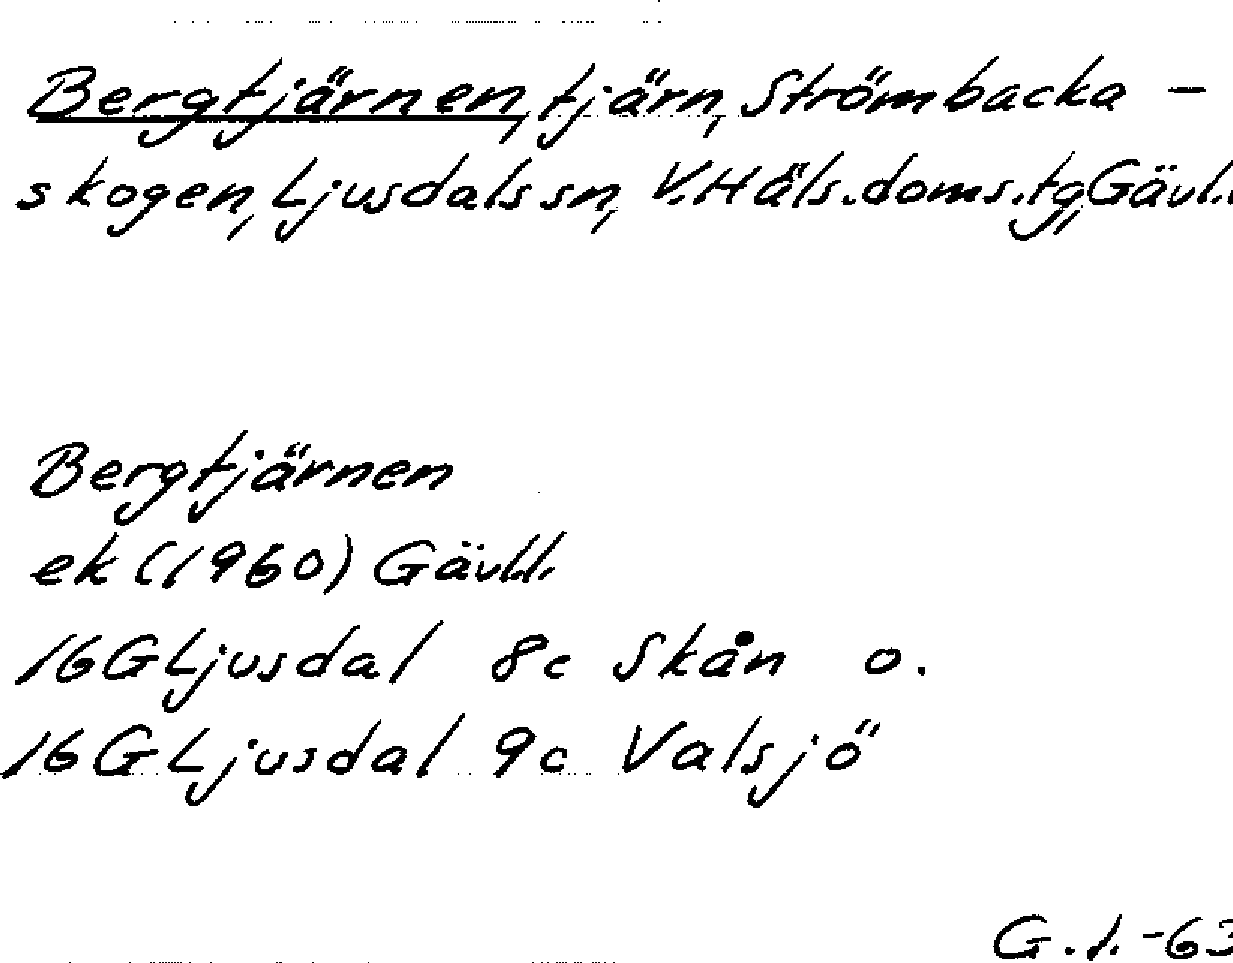 Bergtjärnen, tjärn, Strömbacka -
skogen, Ljusdals sn, V. Häls. doms. tg, Gävl.
Bergtjärnen
ek (1960) Gävl.l.
16G Ljusdal 8c Skån o.
16G Ljusdal 9c Valsjö
-63